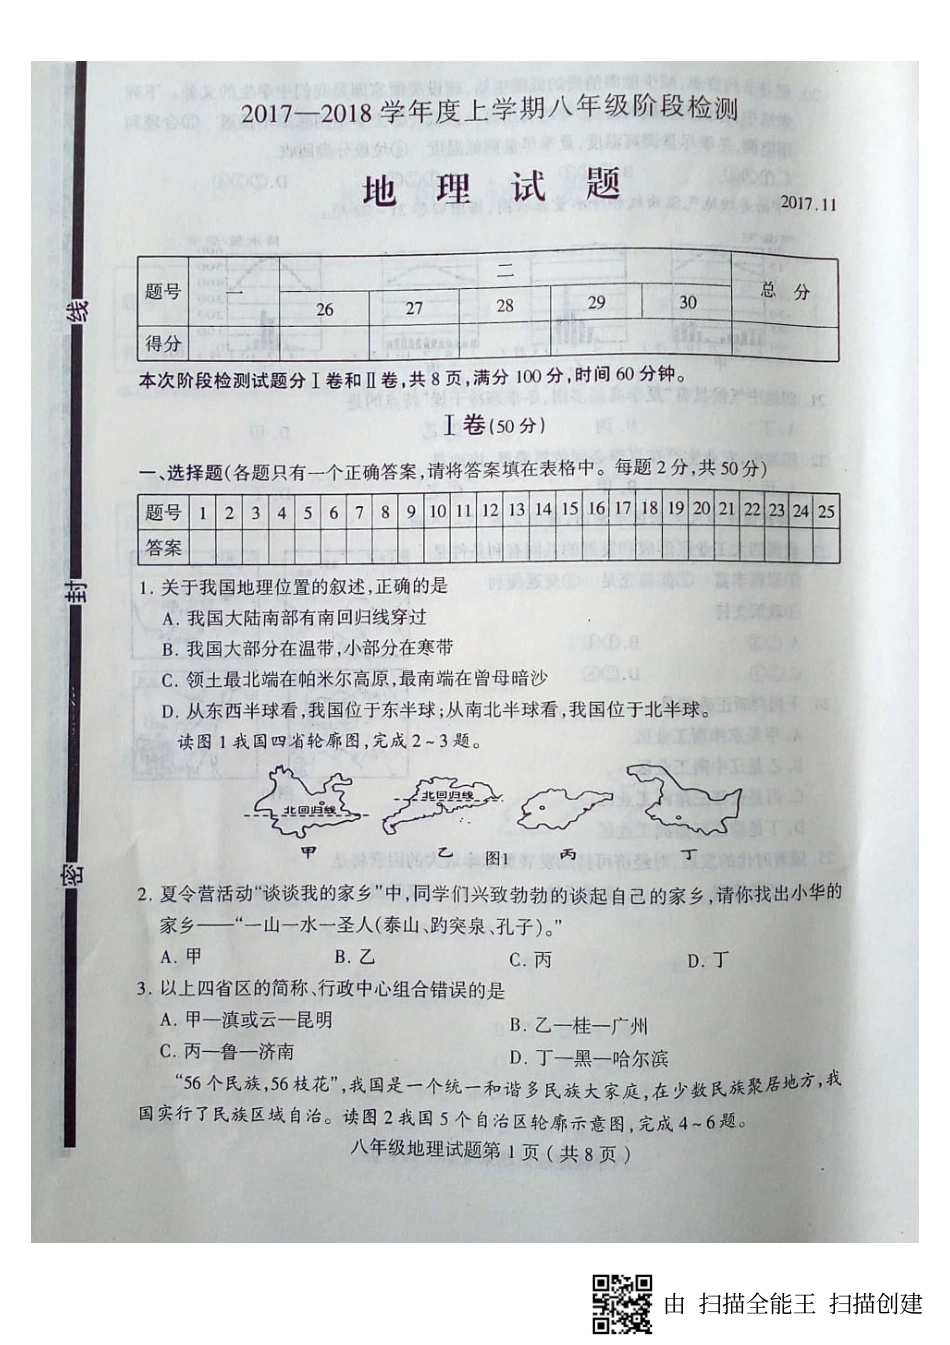 2017—2018学年度上学期八年级阶段检测
地 理 试 题
2017.11
题号 一 二 总 分
26 27 28 29 30
得分
本次阶段检测试题分Ⅰ卷和Ⅱ卷,共8页,满分100分,时间60分钟。
Ⅰ卷(50分)
一、选择题(各题只有一个正确答案,请将答案填在表格中。每题2分,共50分)
题号 1 2 3 4 5 6 7 8 9 10 11 12 13 14 15 16 17 18 19 20 21 22 23 24 25
答案
1. 关于我国地理位置的叙述,正确的是
A. 我国大陆南部有南回归线穿过
B. 我国大部分在温带,小部分在寒带
C. 领土最北端在帕米尔高原,最南端在曾母暗沙
D. 从东西半球看,我国位于东半球;从南北半球看,我国位于北半球。
读图1我国四省轮廓图,完成2~3题。
北回归线 北回归线
甲 乙 图1 丙 丁
2. 夏令营活动“谈谈我的家乡”中,同学们兴致勃勃的谈起自己的家乡,请你找出小华的
家乡——“一山一水一圣人(泰山、趵突泉、孔子)。”
A. 甲 B. 乙 C. 丙 D. 丁
3. 以上四省区的简称、行政中心组合错误的是
A. 甲—滇或云—昆明 B. 乙—桂—广州
C. 丙—鲁—济南 D. 丁—黑—哈尔滨
“56个民族,56枝花”,我国是一个统一和谐多民族大家庭,在少数民族聚居地方,我
国实行了民族区域自治。读图2我国5个自治区轮廓示意图,完成4~6题。
八年级地理试题第1页(共8页)
线
封
密
由 扫描全能王 扫描创建